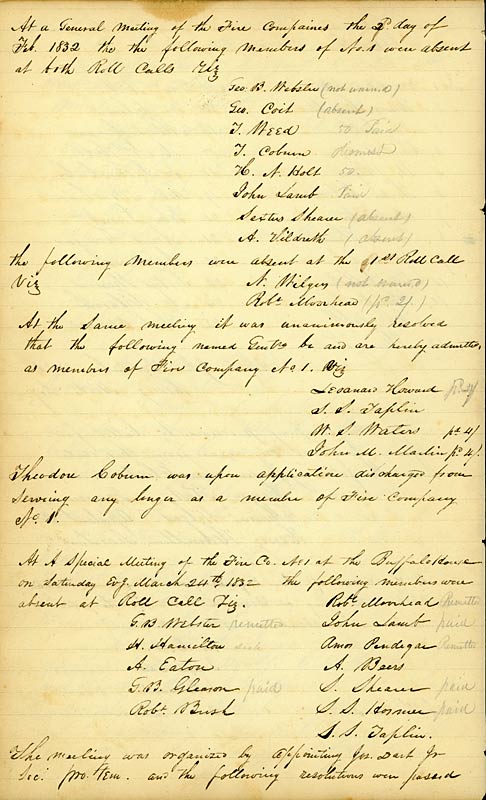 At a General Meeting of the Fire Compaines the 2d. day of
Feb. 1832 the the following members of No. 1 were absent
at both Roll Calls Viz
Geo. B. Webster (not warned)
Geo. Coit (absent)
T. Weed 50 Paid
T. Coburn
H. N. Holt 50.
John Lamb Paid
Sextus Shearer (absent)
A. Hildreth (absent)
the following Members were absent at the 1st Roll Call
Viz N. Wilgus (not warned)
Robt. Moorhead (pd. 2/.)
At the Same meeting it was unanimously resolved
that the following named Gentn be and are hereby admitted
as members of Fire Company No 1. Viz
Leoanard Howard pd. 4/
S. S. Taplin
W. S. Waters pd 4/
John M. Martin pd 4/.
Theodore Coburn was upon application discharged from
serving any longer as a member of Fire Company
No. 1.
At A Special Meeting of the Fire Co. No 1 at the Buffalo House
on Saturday Evg. March 24th 1832 the following members were
absent at Roll Call Viz. Robt. Moorhead Remitted
G. B. Webster remitted John Lamb paid
H. Hamilton sick Amos Pendegar Remitted
A. Eaton A. Beers
G. B. Gleason paid S. Shearer paid
Robt. Bush S. S. Hosmer paid
S. S. Taplin.
The meeting was organized by appointing Jos. Dart Jr
Sec. pro. tem. and the following resolutions were passed